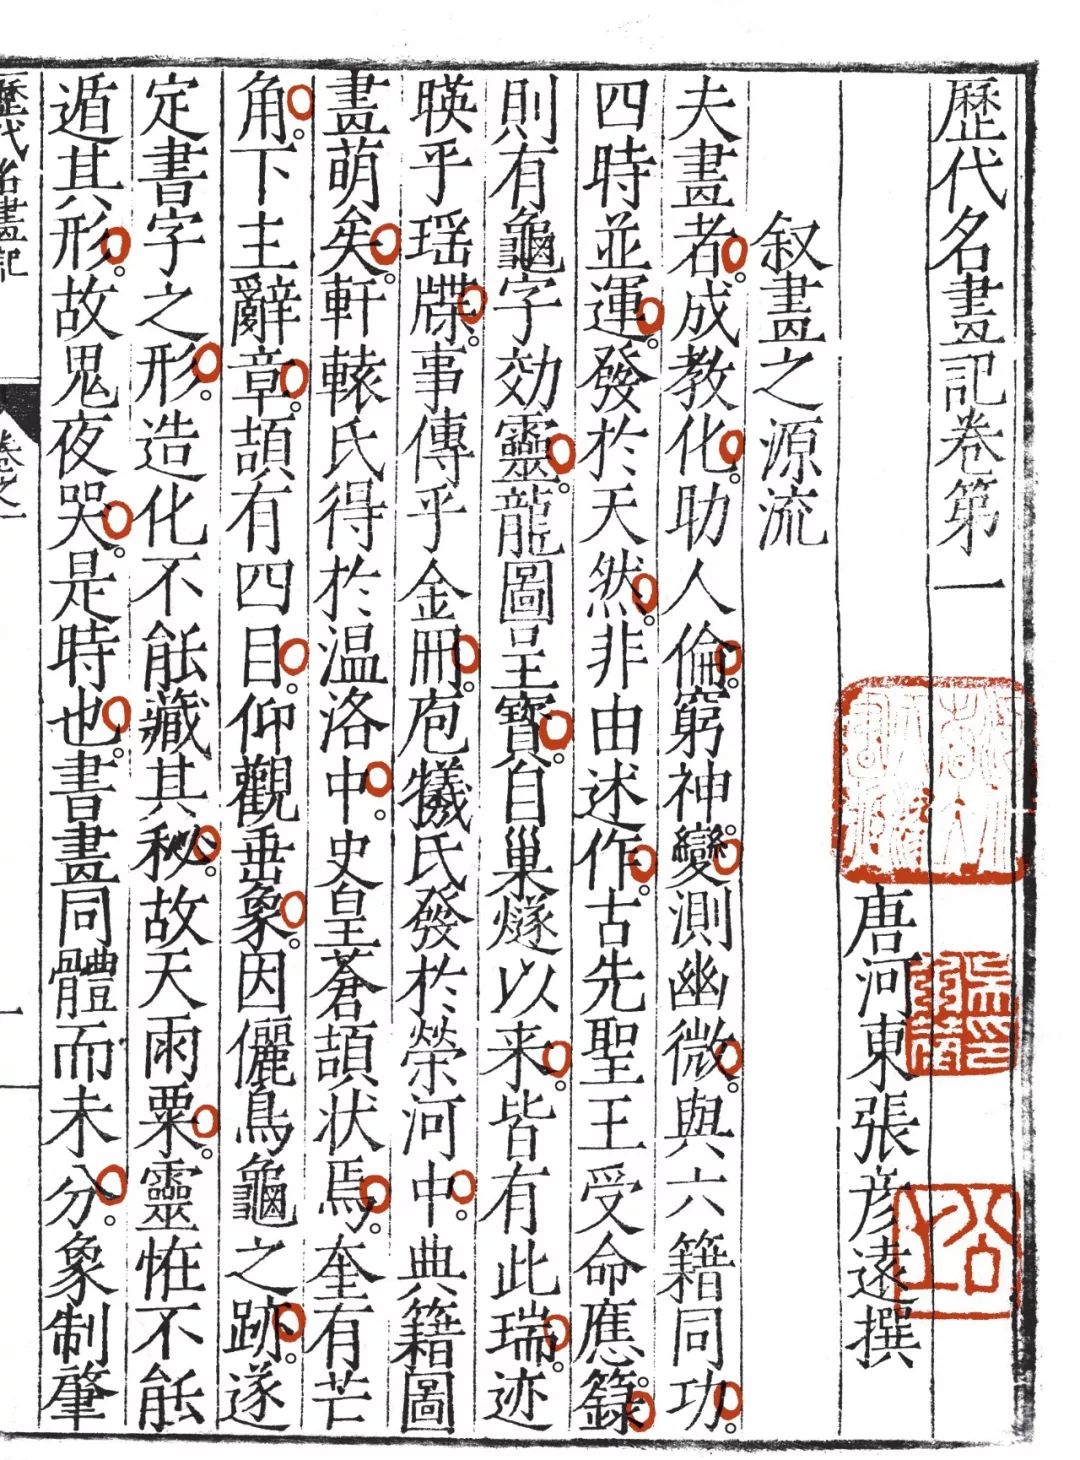 歷代名畫記卷第一
唐河東張彥遠撰
叙畫之源流
夫畫者。成教化。助人倫。窮神。變測幽微。與六籍同功。
四時並運。發於天然。非由述作。古先聖王受命應籙。
則有龜字効靈。龍圖呈寶。自巢燧以来。皆有此瑞。迹
暎乎瑶牒。事傳乎金冊。庖犧氏發於榮河中。典籍圖
畫萌矣。軒轅氏得於温洛中。史皇蒼頡状焉。奎有芒
角。下主辭章。頡有四目。仰觀垂象。因儷鳥龜之跡。遂
定書字之形。造化不能藏其秘。故天雨粟。靈恠不能
遁其形。故鬼夜哭。是時也。書畫同體而未分。象制肇
歷代名畫記 卷之一 一